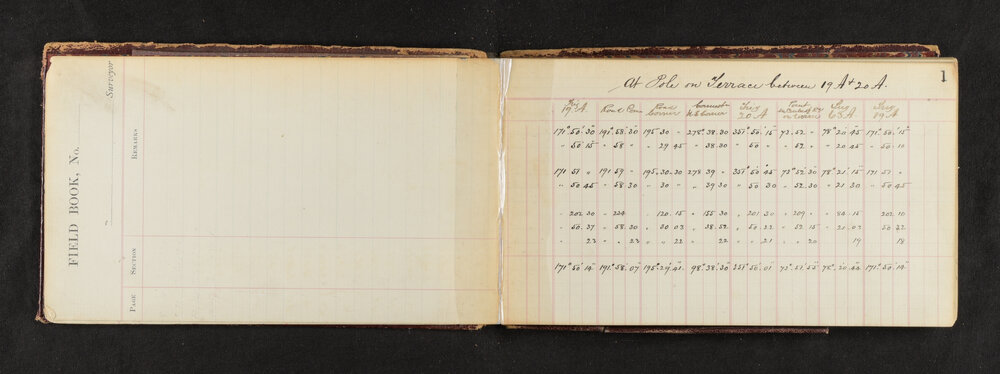 FIELD BOOK, No.
Surveyor
PAGE SECTION REMARKS
1
At Pole on Terrace between 19 A & 20 A.
Trig 19 A Road Road Corner N.E. Corner Trig 20 A Point on Trig 63 A Trig 19 A
171° 50' 30" 191° 58' 30 195 30 " 278° 38' 30 351° 50' 15" 73 52 " 78° 20' 45 171° 50' 15"
" 50 15 " 58 " " 29 45 " 38 30 " 50 " " 52 " " 20 45 " 50 10
171 51 " 191 59 " 195 30 30 278 39 " 351° 50' 45" 73° 52' 30 78° 21' 15" 171 51 "
" 50 45 " 58 30 " 30 " " 39 30 " 50 30 " 52 30 " 21 30 " 50 45
202 30 " 224 120 15 " 155 30 " 201 30 " 209 " " 84 15 202 10
" 50 37 " 58 30 " 30 03 " 38 52 " 50 22 " 52 15 " 21 03 50 32
" 23 " " 23 " 22 " 22 " 21 " 20 19 18
171° 50' 14" 191° 58' 07" 195° 29' 41" 98° 38' 30" 351° 50' 01" 78° 20' 44 171° 50' 14"